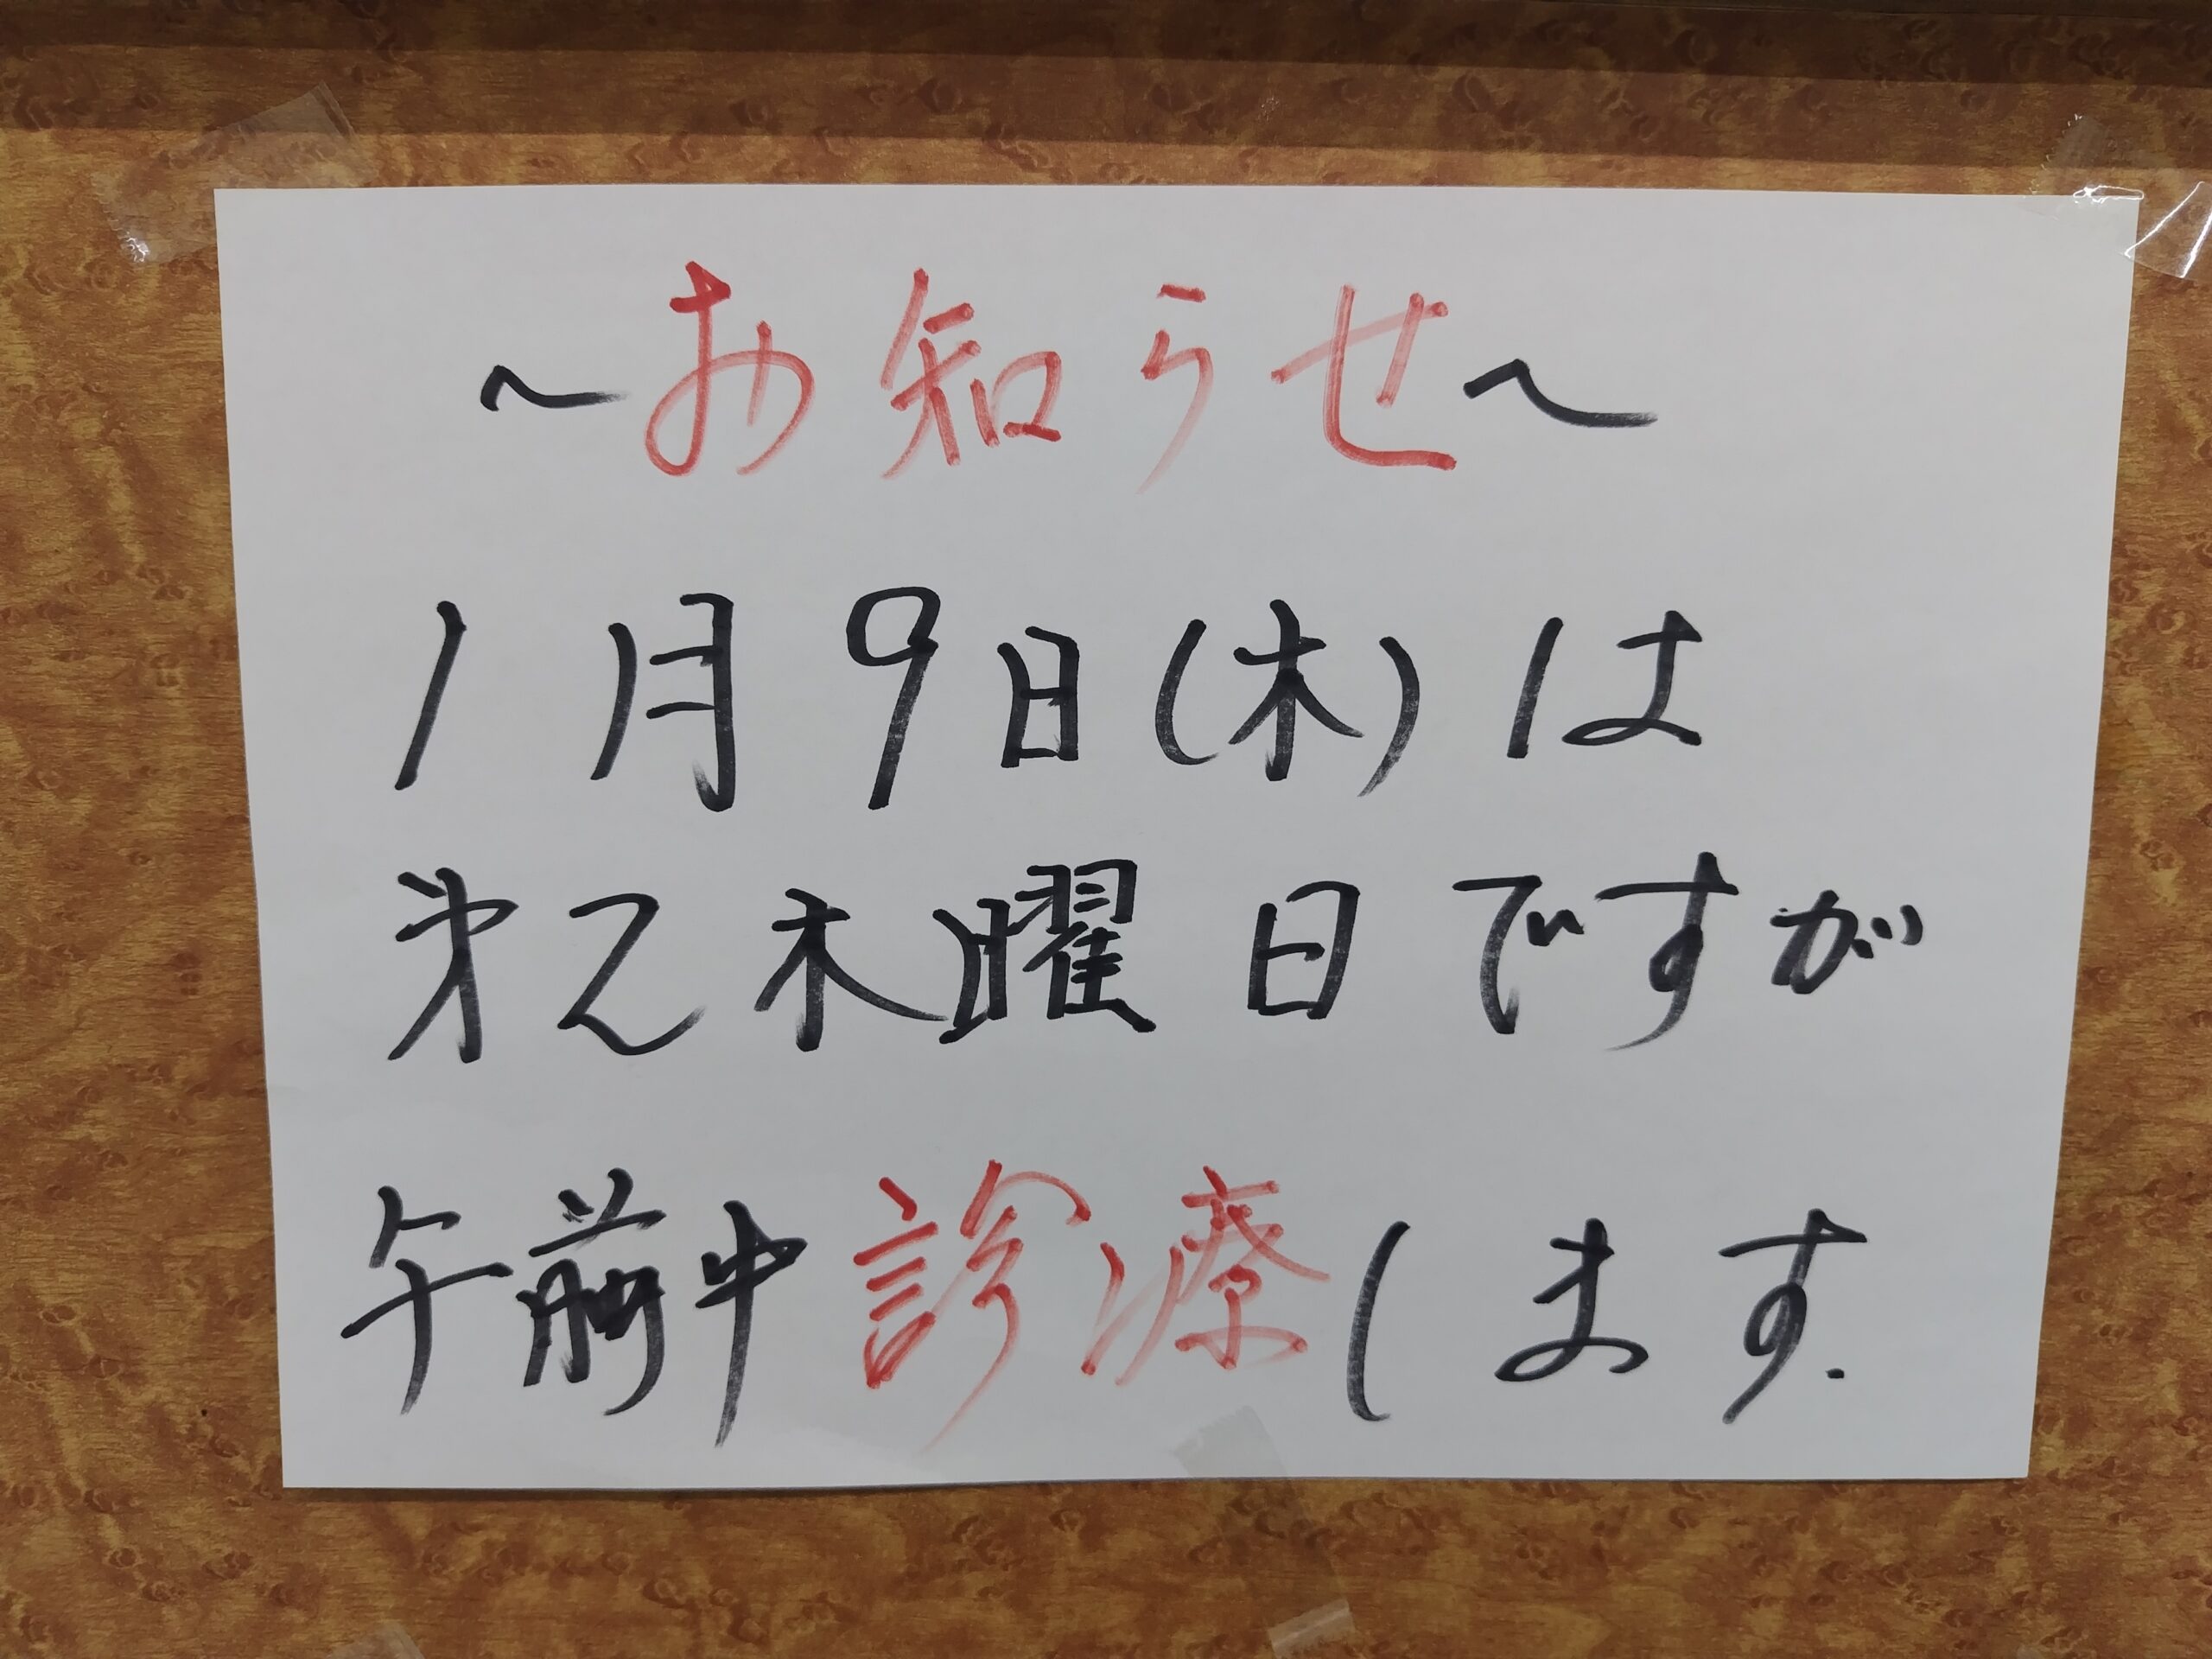 ～お知らせ～
1月9日(木)は
第2木曜日ですが
午前中診療します.